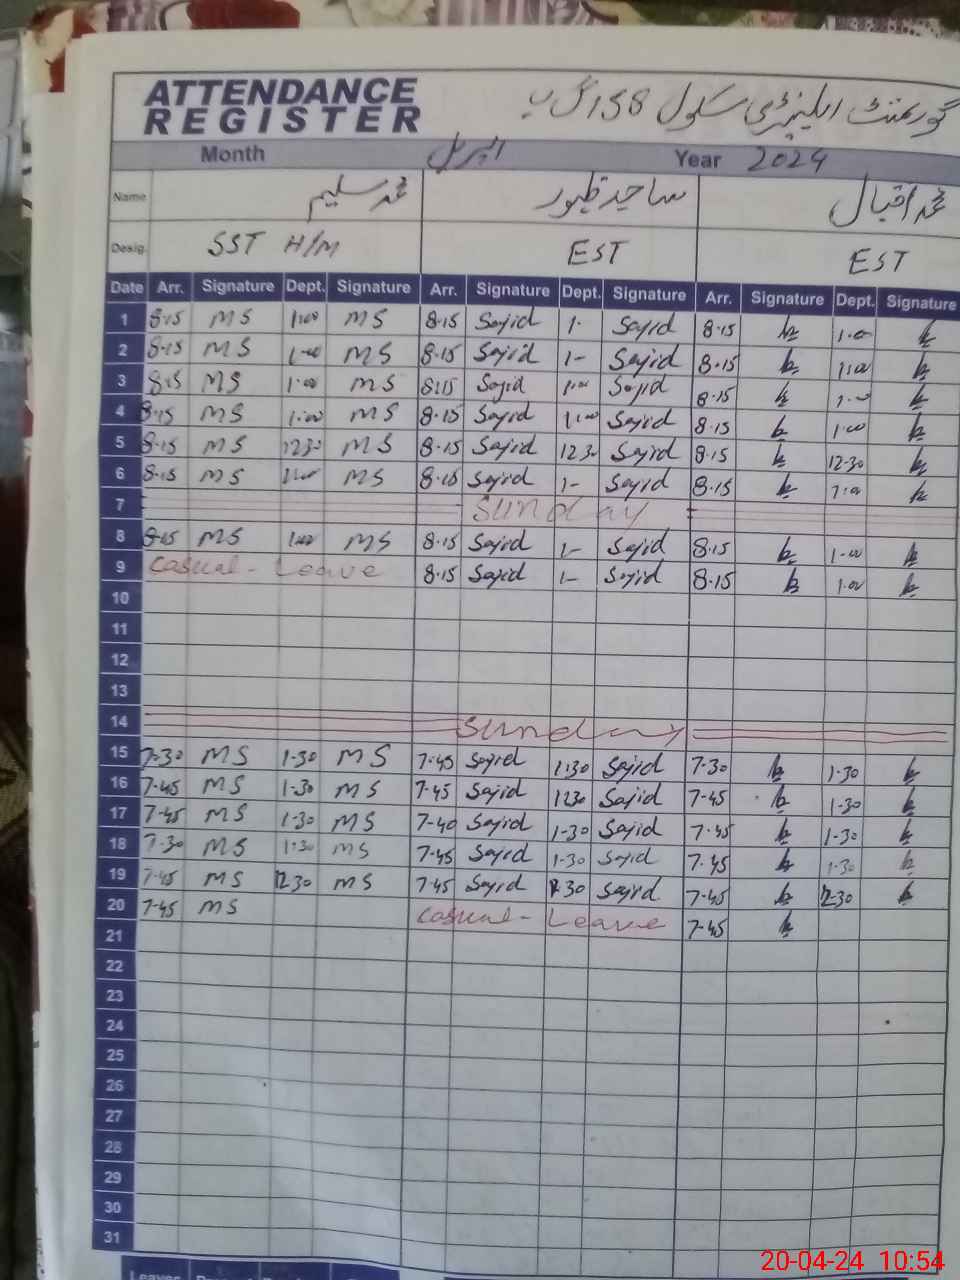 ATTENDANCE REGISTER گورنمنٹ ایلیمنٹری سکول 158 گ ب
Month اپریل Year 2024
Name محمد سلیم ساجد ظہور محمد اقبال
Desig. SST H/M EST EST
Date Arr. Signature Dept. Signature Arr. Signature Dept. Signature Arr. Signature Dept. Signature
1 8·15 MS 1·00 MS 8·15 Sajid 1· Sajid 8·15 1·00
2 8·15 MS 1-00 MS 8·15 Sajid 1- Sajid 8·15 1:00
3 8·15 MS 1·00 MS 8:15 Sajid 1·00 Sajid 8·15 1·00
4 8·15 MS 1·00 MS 8·15 Sajid 1:00 Sajid 8·15 1·00
5 8·15 MS 1230 MS 8·15 Sajid 1230 Sajid 8·15 12-30
6 8·15 MS 1·00 MS 8·15 Sajid 1- Sajid 8·15 1·00
7 Sunday
8 8·15 MS 1·00 MS 8·15 Sajid 1- Sajid 8·15 1·00
9 Casual- Leave 8·15 Sajid 1- Sajid 8·15 1·00
10
11
12
13
14 Sunday
15 7-30 MS 1-30 MS 7-45 Sajid 1:30 Sajid 7-30 1-30
16 7-45 MS 1-30 MS 7-45 Sajid 130 Sajid 7-45 1-30
17 7-45 MS 1-30 MS 7-40 Sajid 1-30 Sajid 7-45 1-30
18 7-30 MS 1:30 MS 7-45 Sajid 1-30 Sajid 7-45 1-30
19 7-45 MS 12-30 MS 7-45 Sajid 12-30 Sajid 7-45 12-30
20 7-45 MS Casual- Leave 7-45
21
22
23
24
25
26
27
28
29
30
31
Leaves
20-04-24 10:54